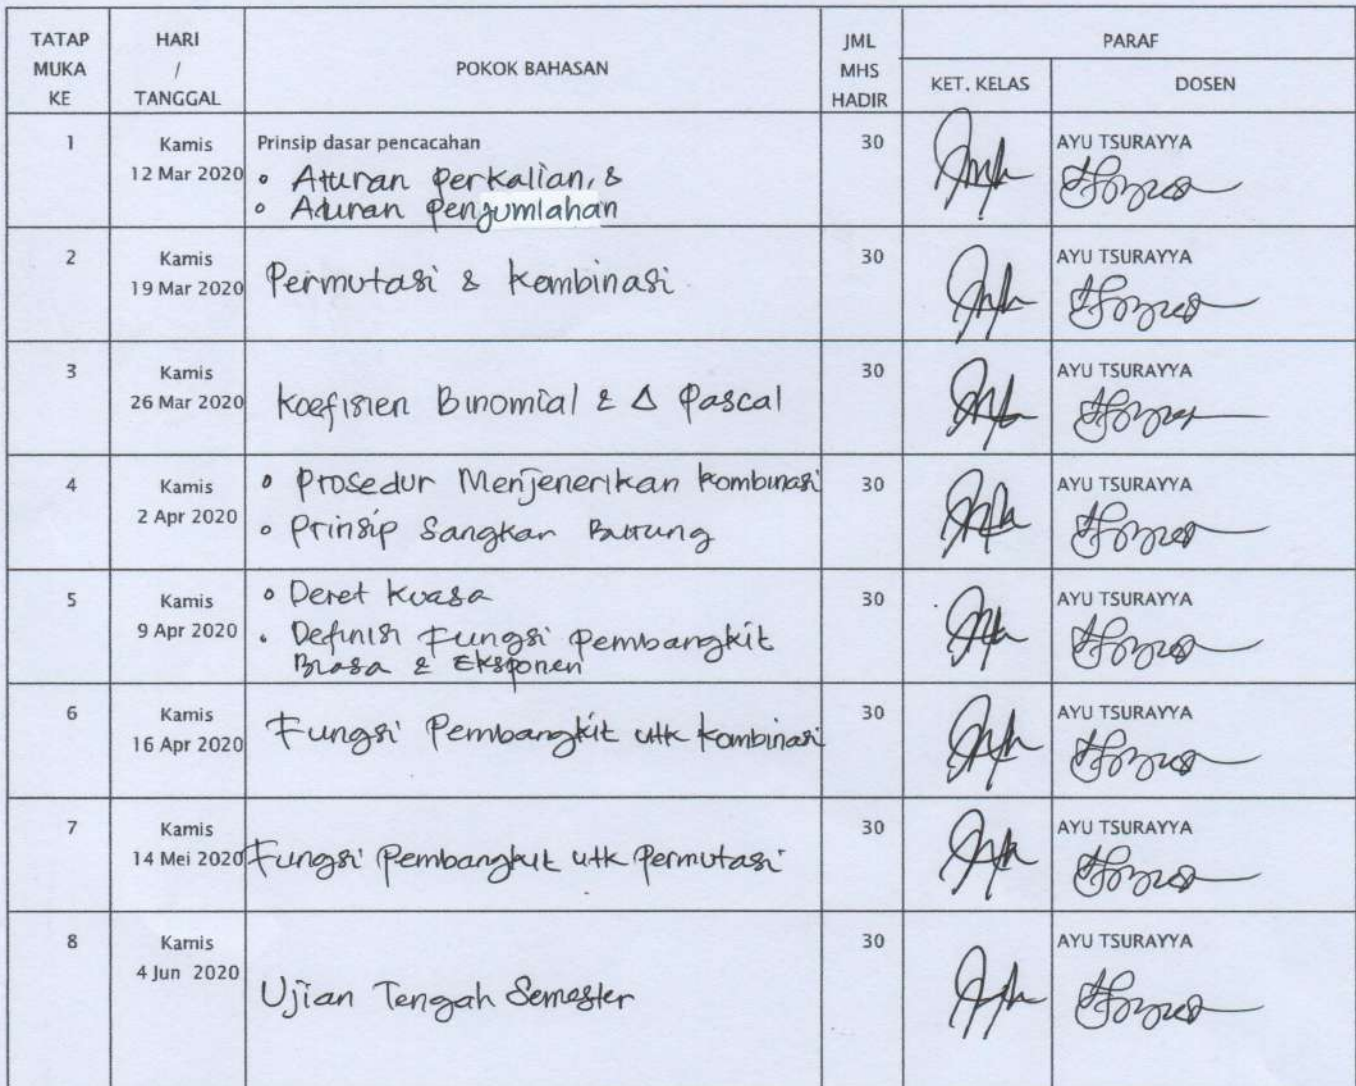 TATAP MUKA KE
HARI / TANGGAL
POKOK BAHASAN
JML MHS HADIR
PARAF
KET. KELAS
DOSEN
1
Kamis
12 Mar 2020
Prinsip dasar pencacahan
• Aturan perkalian, &
• Aturan penjumlahan
30
AYU TSURAYYA
2
Kamis
19 Mar 2020
Permutasi & Kombinasi
30
AYU TSURAYYA
3
Kamis
26 Mar 2020
Koefisien Binomial & Δ Pascal
30
AYU TSURAYYA
4
Kamis
2 Apr 2020
• Prosedur Menjenerikan Kombinasi
• Prinsip Sangkar Burung
30
AYU TSURAYYA
5
Kamis
9 Apr 2020
• Deret Kuasa
• Definisi Fungsi Pembangkit
Biasa & Eksponen
30
AYU TSURAYYA
6
Kamis
16 Apr 2020
Fungsi Pembangkit utk Kombinasi
30
AYU TSURAYYA
7
Kamis
14 Mei 2020
Fungsi Pembangkit utk Permutasi
30
AYU TSURAYYA
8
Kamis
4 Jun 2020
Ujian Tengah Semester
30
AYU TSURAYYA